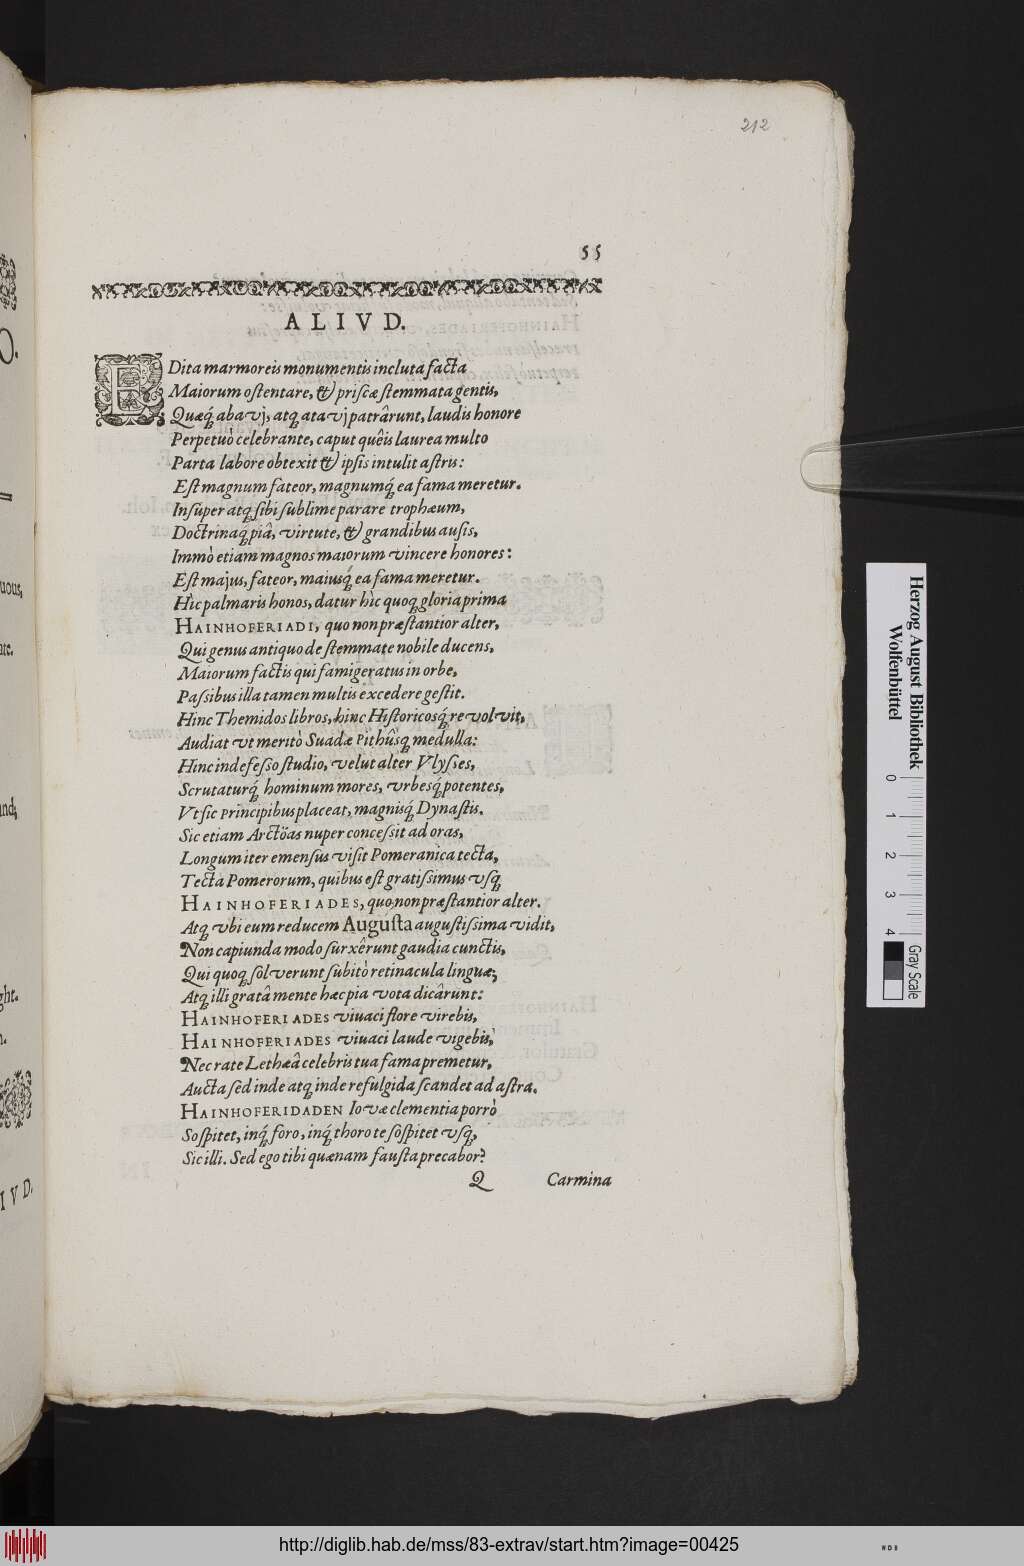 212
55
ALIVD.
EDita marmoreis monumentis incluta facta
Maiorum ostentare, & priscæ stemmata gentis,
Quæq́ abavj, atq́ atavj patrârunt, laudis honore
Perpetuò celebrante, caput quêis laurea multo
Parta labore obtexit & ipsis intulit astris:
Est magnum fateor, magnumq́ ea fama meretur.
Insuper atq́ sibi sublime parare trophæum,
Doctrinaq́ piâ, virtute, & grandibus ausis,
Immò etiam magnos maiorum vincere honores:
Est majus, fateor, maiusq́ ea fama meretur.
Hìc palmaris honos, datur hìc quoq́ gloria prima
HAINHOFERIADI, quo non præstantior alter,
Qui genus antiquo de stemmate nobile ducens,
Maiorum factis qui famigeratus in orbe,
Passibus illa tamen multis excedere gestit.
Hinc Themidos libros, hinc Historicosq́ revolvit,
Audiat vt meritò Suadæ Pithûsq́ medulla:
Hinc indefesso studio, velut alter Vlysses,
Scrutaturq́ hominum mores, vrbesq́ potentes,
Vt sic Principibus placeat, magnisq́ Dynastis.
Sic etiam Arctöas nuper concessit ad oras,
Longum iter emensus visit Pomeranica tecta,
Tecta Pomerorum, quibus est gratissimus vsq́
HAINHOFERIADES, quo non præstantior alter.
Atq́ vbi eum reducem Augusta augustissima vidit,
Non capiunda modo surxêrunt gaudia cunctis,
Qui quoq́ solverunt subitò retinacula linguæ;
Atq́ illi gratâ mente hæc pia vota dicârunt:
HAINHOFERIADES vivaci flore virebis,
HAINHOFERIADES vivaci laude vigebis,
Nec rate Lethæâ celebris tua fama premetur,
Aucta sed inde atq́ inde refulgida scandet ad astra.
HAINHOFERIDADEN Iovæ clementia porrò
Sospitet, inq́ foro, inq́ thoro te sospitet vsq́,
Sic illi. Sed ego tibi quænam fausta precabor?
Q Carmina
uous,
ate.
and;
ght.
IVD.
Herzog August Bibliothek
Wolfenbüttel
0 1 2 3 4
Gray Scale
http://diglib.hab.de/mss/83-extrav/start.htm?image=00425
WDB